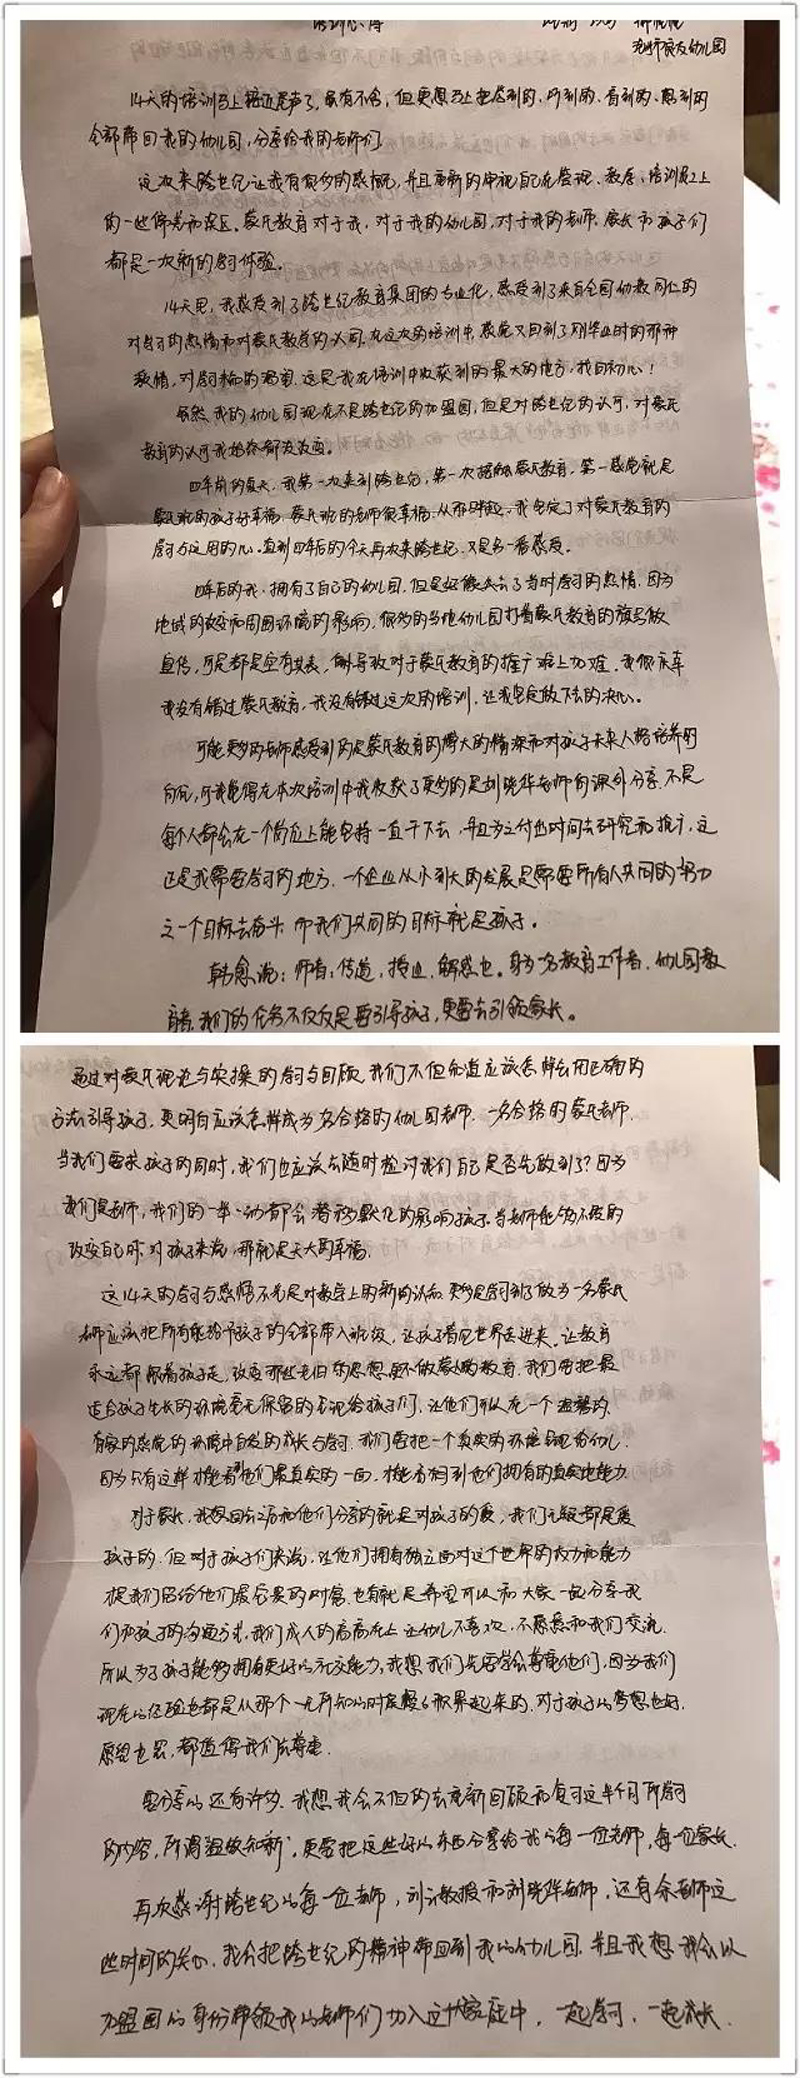 培训心得
幼儿园
14天的培训马上接近尾声了，虽有不舍，但更想马上把学到的、听到的、看到的、想到的
全部带回我的幼儿园，分享给我的老师们
这次来跨世纪让我有很多的感慨，并且重新的审视自己在管理、教学、培训员工上
的一些偏差和误区。蒙氏教育对于我，对于我的幼儿园，对于我的老师、家长和孩子们
都是一次新的学习体验。
14天里，我感受到了跨世纪教育集团的专业化，感受到了来自全国幼教同仁的
对学习的热情和对蒙氏教学的认同。在这次的培训中，感觉又回到了刚毕业时的那种
激情，对学习的渴望，这是我在培训中收获到的最大的地方，找回初心！
虽然我的幼儿园现在不是跨世纪的加盟园，但是对跨世纪的认可，对蒙氏
教育的认可我始终都没改变。
四年前的夏天，我第一次来到跨世纪，第一次接触蒙氏教育，第一感觉就是
蒙氏班的孩子好幸福，蒙氏班的老师很幸福。从那时起，我坚定了对蒙氏教育的
学习与运用的心。直到四年后的今天再次来跨世纪，又是另一番感受。
四年后的我，拥有了自己的幼儿园，但是好像失去了当时学习的热情，因为
地域的改变和周围环境的影响，很多的当地幼儿园打着蒙氏教育的旗号做
宣传，可是都是空有其表，导致对于蒙氏教育的推广难上加难，我很庆幸
我没有错过蒙氏教育，我没有错过这次的培训，让我坚定做下去的决心。
可能更多的老师感受到的是蒙氏教育的博大的情深和对孩子未来人格培养的
方向，可我觉得在本次培训中我收获了更多的是刘晓华老师的课外分享，不是
每个人都会在一个岗位上能坚持一直干下去，并且为之付出时间去研究和推广，这
还是我需要学习的地方，一个企业从小到大的发展是需要所有人共同的努力
之一个目标去奋斗，而我们共同的目标就是孩子。
韩愈说：师者，传道，授业，解惑也。身为一名教育工作者，幼儿园教
育者，我们的任务不仅仅是要引导孩子，更要去引领家长。
通过对蒙氏理论与实操的学习与回顾，我们不但知道应该怎样去用正确的
方法引导孩子，更明白应该怎样成为一名合格的幼儿园老师，一名合格的蒙氏老师，
当我们要求孩子的同时，我们也应该去随时检讨我们自己是否先做到了？因为
我们是老师，我们的一举一动都会潜移默化的影响孩子，当老师能够不断的
改变自己时，对孩子来说，那就是天大的幸福。
这14天的学习与感悟不光是对教学上的新的认知，更多是学到了做为一名蒙氏
老师应该把所有能给予孩子的全部带入班级，让孩子看见世界走进来，让教育
永远都跟着孩子走，改变那些老旧的思想，不做蒙的教育，我们要把最
适合孩子生长的环境毫无保留的呈现给孩子们，让他们可以在一个温馨的，
有家的感觉的环境中自发的成长与学习，我们要把一个真实的环境呈现给幼儿，
因为只有这样才能看到他们最真实的一面，才能看到他们拥有的真实地能力
对于家长，我想回去之后和他们分享的就是对孩子的爱，我们无疑都是爱
孩子的，但对于孩子们来说，让他们拥有独立面对这个世界的权力和能力
才是我们留给他们最宝贵的财富，也有就是希望可以和大家一起分享我
们和孩子的沟通方式，我们成人的高高在上让幼儿不喜欢，不愿意和我们交流，
所以为了孩子能够拥有更好的社交能力，我想我们先要学会尊重他们，因为我们
现在的经验也都是从那个一无所知的时候慢慢积累起来的，对于孩子的梦想也好，
愿望也罢，都值得我们去尊重。
要分享的还有许多，我想我会不但的去重新回顾和复习这半个月所学习
的内容，所谓“温故知新”，更要把这些好的东西分享给我的每一位老师，每一位家长。
再次感谢跨世纪的每一位老师，刘教授和刘晓华老师，还有余老师这
些时间的关心，我会把跨世纪的精神带回到我的幼儿园，并且我想我会以
加盟园的身份带领我的老师们加入这个大家庭中，一起学习，一起成长。